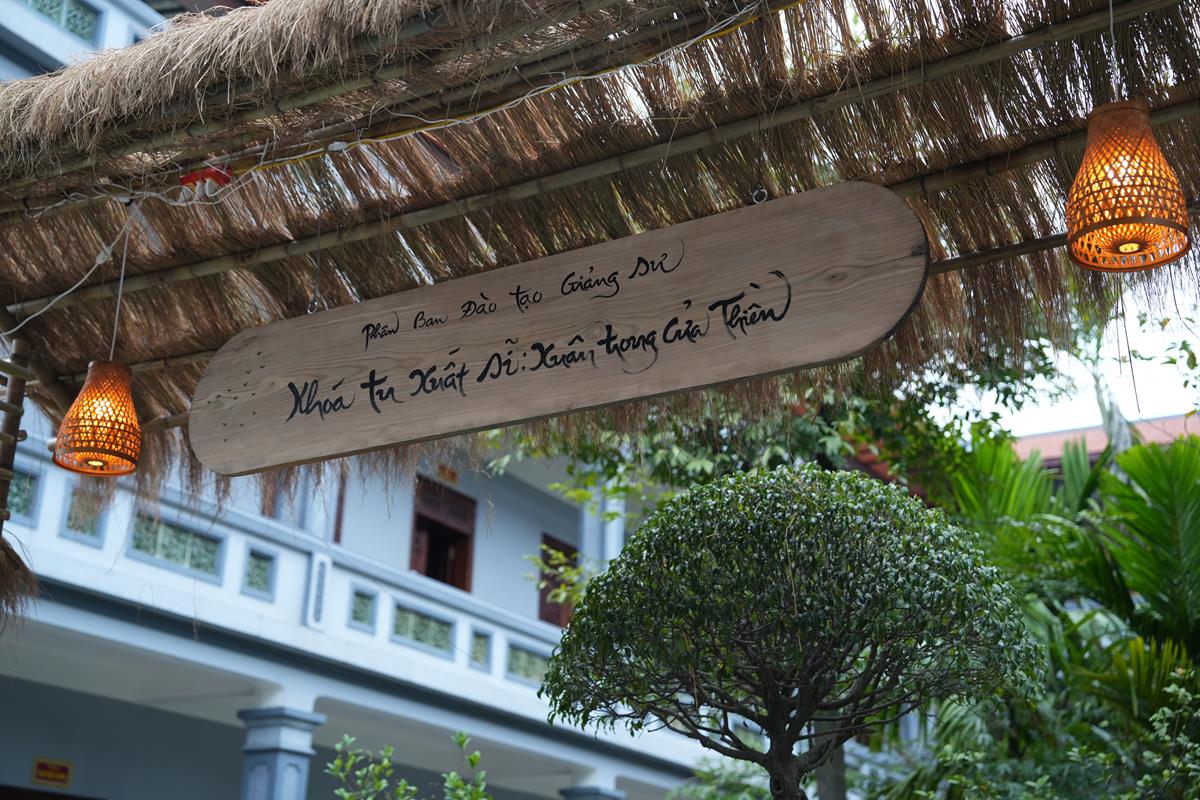 Phân Ban Đào tạo Giảng sư
Khoá tu Xuất sĩ: Xuân trong Cửa Thiền